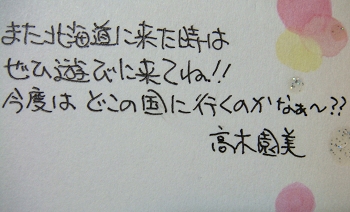 また北海道に来た時は
ぜひ遊びに来てね!!
今度は どこの国に行くのかなぁ〜??
高木園美